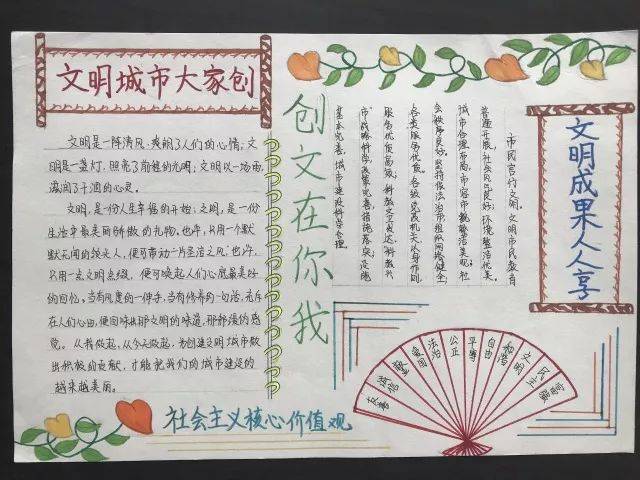 文明城市大家创
文明是一阵清风,爽朗了人们的心情;文
明是一盏灯,照亮了前健的光明;文明似一场雨,
滋润了干涸的心灵。
文明,是一份人生幸福的开始;文明,是一份
生活幸最美丽的礼物。也许,只用一个默
默无闻的人,便可带动一片圣洁之风;也许,
只用一点文明点缀,便可唤起人们心底最美好
的回忆。当有风度的一伸手,当有修养的一句话,充斥
在人们心田,便回味出那文明的味道,那的感
觉。从我做起,从今天做起,为创建文明城市做
出积极的贡献,才能把我们的城市建设的
越来越美丽。
创文在你我
市民言行文明。文明市民教育
普遍开展,社会风气良好;环境整洁优美。
城市合理布局,市容市貌整洁美观;社
会秩序良好。坚持依法治市组织网络健全;
各类服务优质。各级党政机关作则
服务优质高效;科教文卫发达。"科教兴
市"战略科学政策完善措施落实;交通
基本完善。城市建设科学合理
文明成果人人享
富强
民主
文明
和谐
自由
平等
公正
法治
爱国
敬业
诚信
友善
社会主义核心价值观